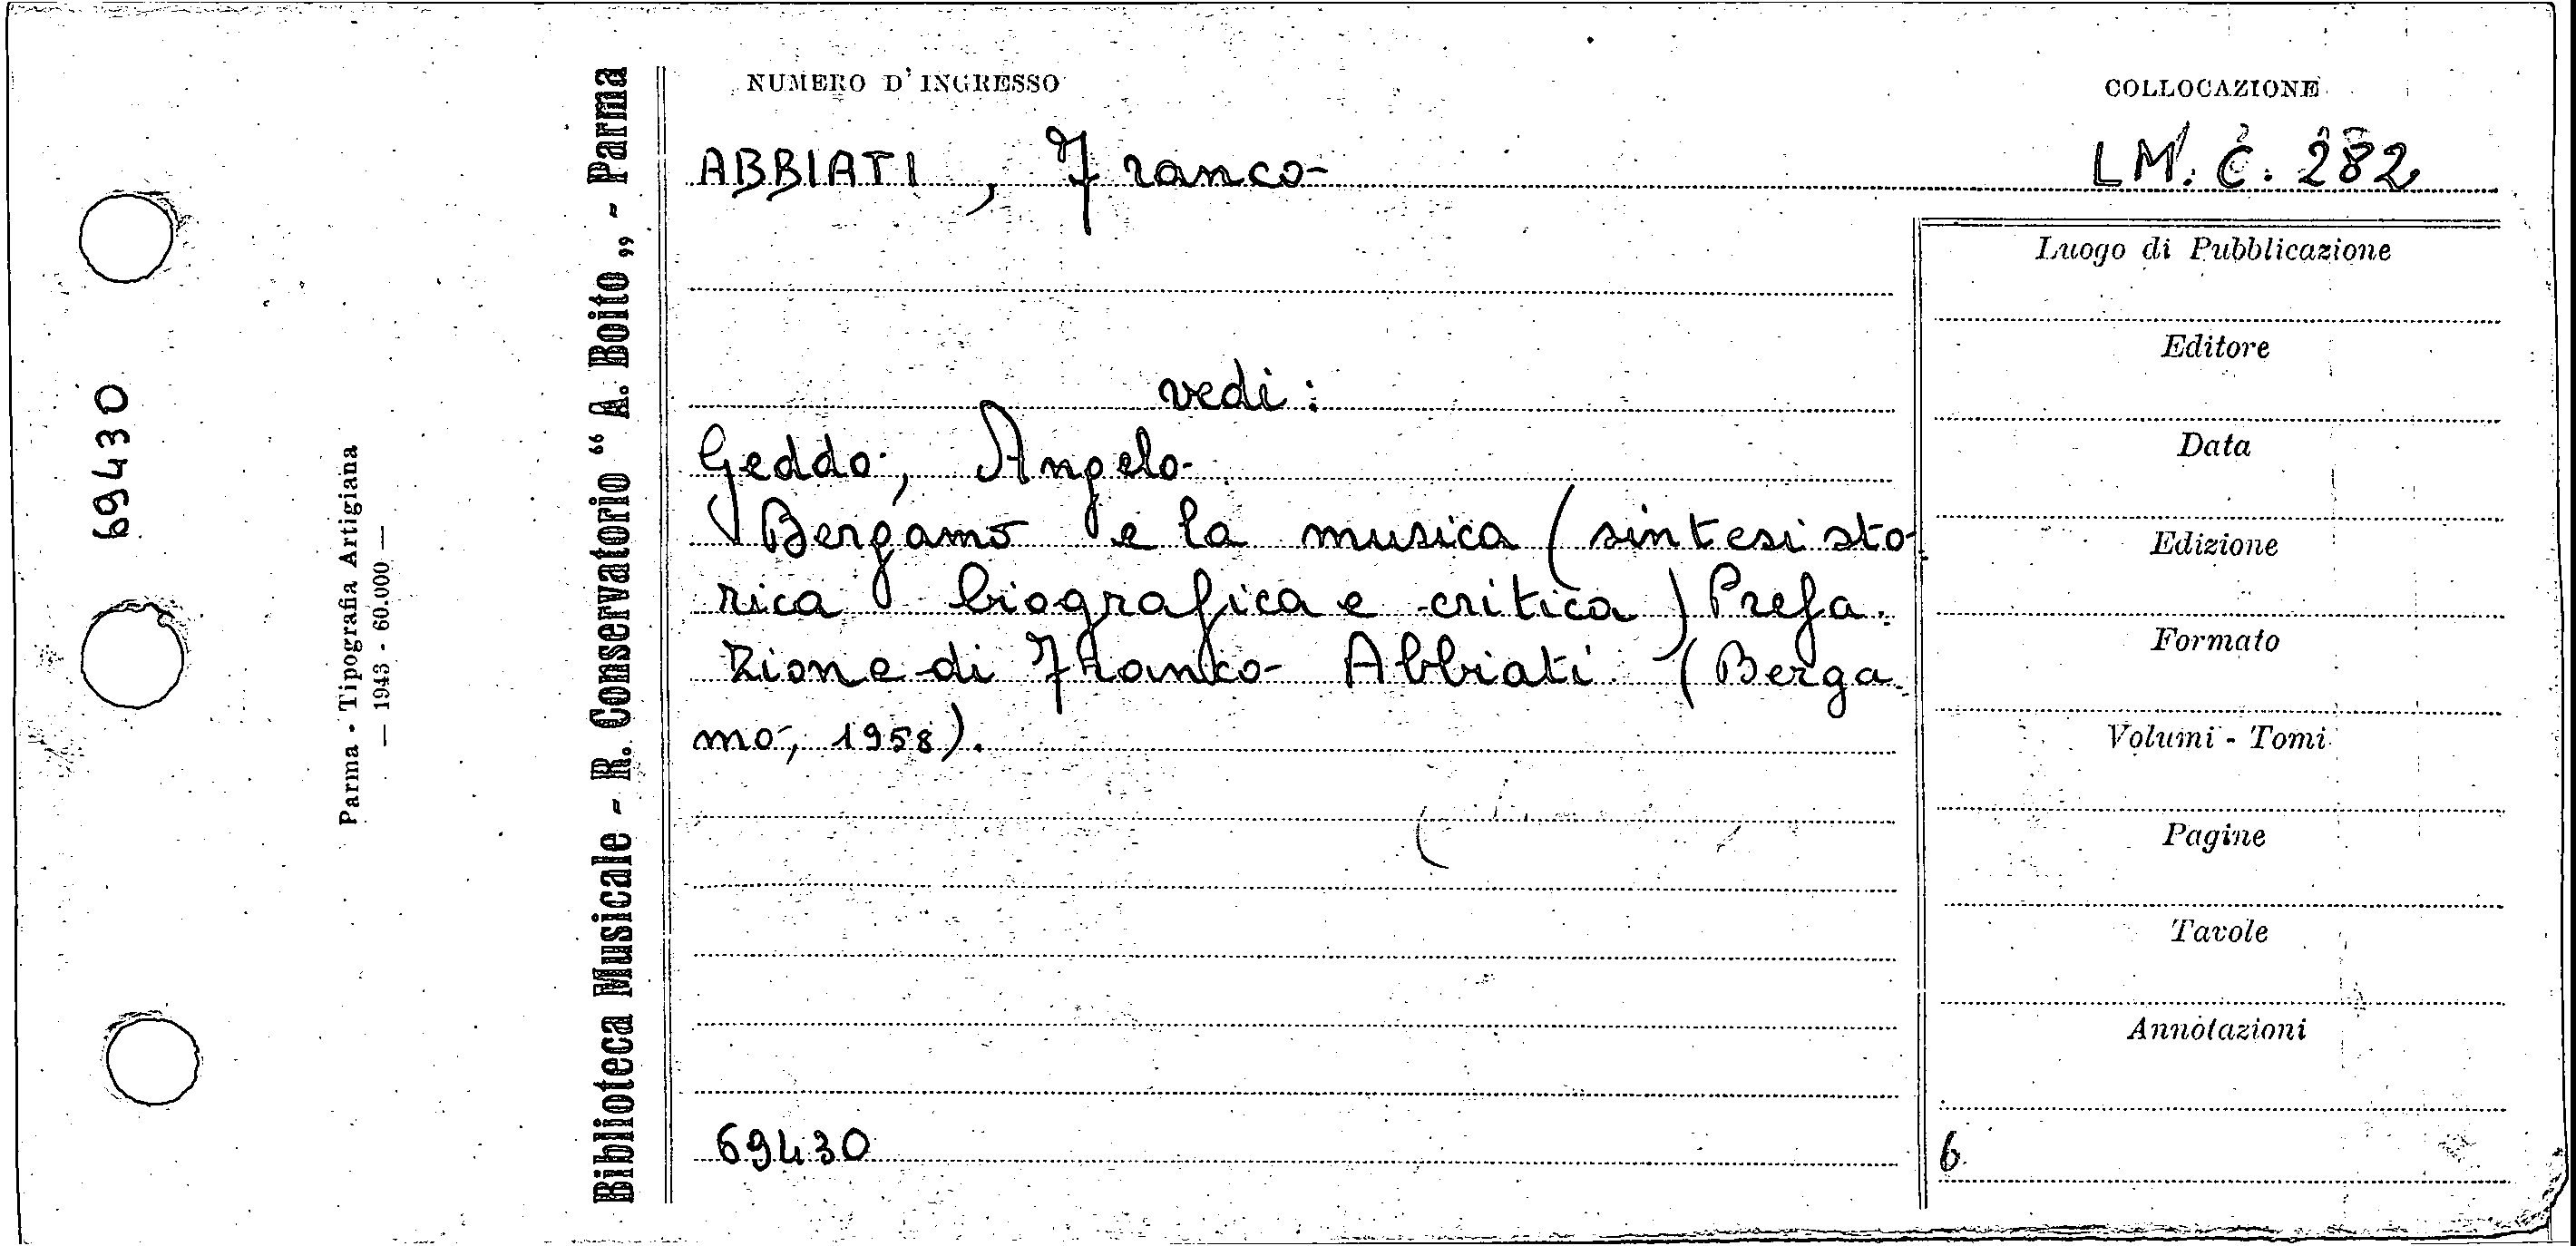 NUMERO D'INGRESSO
COLLOCAZIONE
ABBIATI, Franco
LM. C. 282
vedi:
Geddo, Angelo
Bergamo e la musica (sintesi sto-
rica biografica e critica) Prefa-
zione di Franco Abbiati (Berga-
mo, 1958).
69430
Luogo di Pubblicazione
Editore
Data
Edizione
Formato
Volumi - Tomi
Pagine
Tavole
Annotazioni
6
Biblioteca Musicale - R. Conservatorio "A. Boito" - Parma
Parma - Tipografia Artigiana
— 1943 - 60.000 —
69430